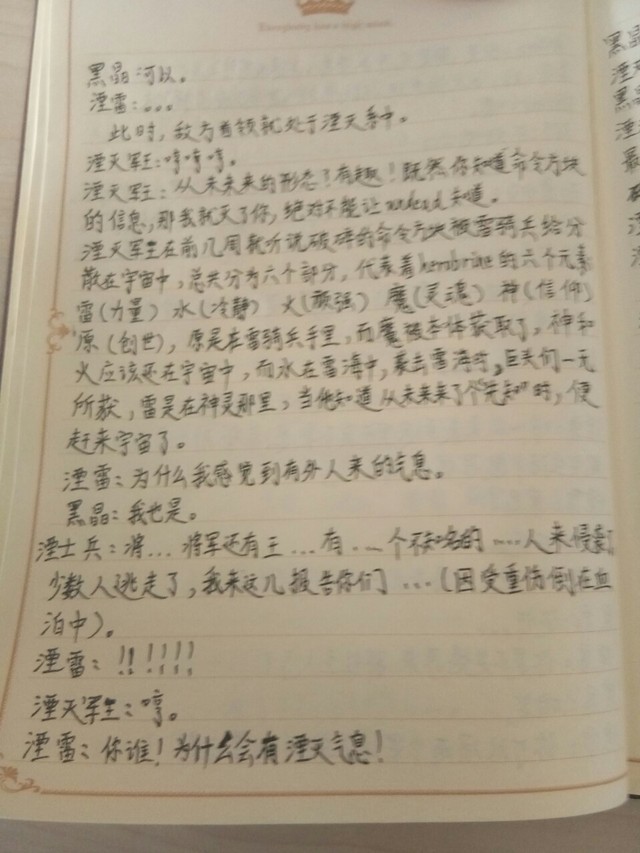 黑晶:可以。
湮雷:。。。
此时,敌方首领就处于湮灭系中。
湮灭军王:哼哼哼。
湮灭军王:从未未来的形态?有趣!既然你知道命令方块
的信息,那我就灭了你,绝对不能让 知道。
湮灭军王在前几周就听说破碎的命令方块被雪骑兵给分
散在宇宙中,总共分为六个部分,代表着herobrine的六个元素
雷(力量) 水(冷静) 火(顽强) 魔(灵魂) 神(信仰)
原(创世),原是在雪骑兵手里,而魔被本体获取了,神和
火应该还在宇宙中,而水在雪海中,袭击雪海时,巨头们一无
所获,雷是在神灵那里,当他知道从未来来了个“先知”时,便
赶来宇宙了。
湮雷:为什么我感觉到有外人来的气息。
黑晶:我也是。
湮士兵:将...将军还有王...有...个不知名的...人来侵袭了
少数人逃走了,我来这儿报告你们...(因受重伤倒在血
泊中)。
湮雷:!!!!!!
湮灭军王:哼。
湮雷:你谁!为什么会有湮灭气息!